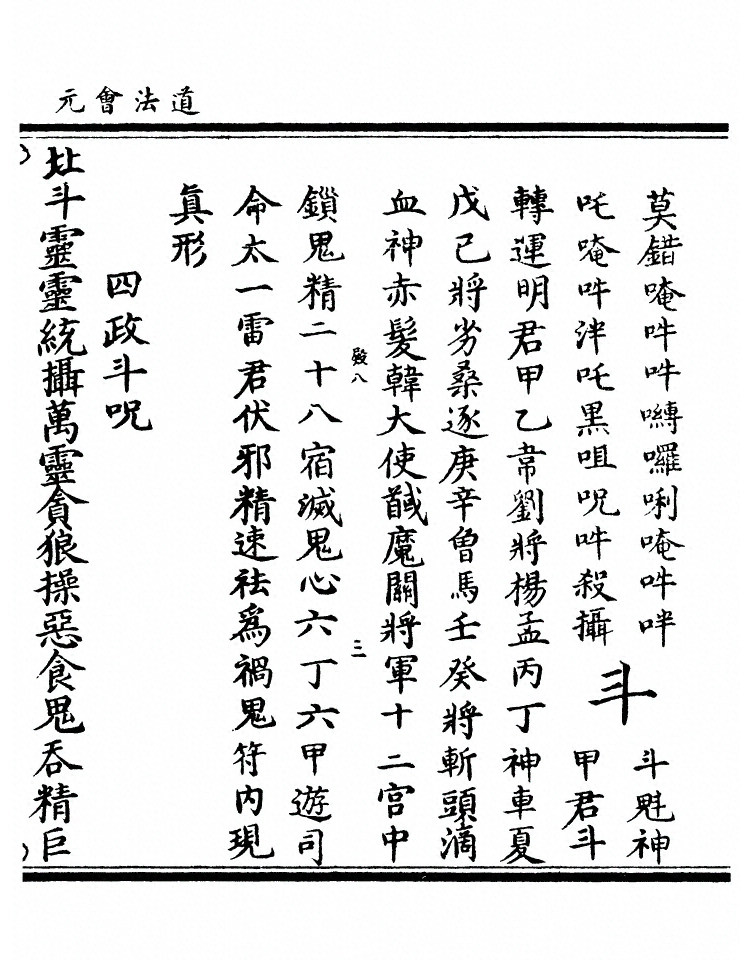 道法會元
莫錯唵吽吽嚩囉唎唵吽吽 斗魁神
吒唵吽泮吒黑咀呪吽殺攝 斗 甲君斗
轉運明君甲乙韋劉將楊孟丙丁神車夏
戊己將劣桑逐庚辛曾馬壬癸將斬頭滴
血神赤髮韓大使馘魔關將軍十二宮中
發八 三
鎖鬼精二十八宿滅鬼心六丁六甲遊司
命太一雷君伏邪精速祛為禍鬼符內現
眞形
四政斗呪
斗靈靈統攝萬靈貪狼操惡食鬼吞精巨